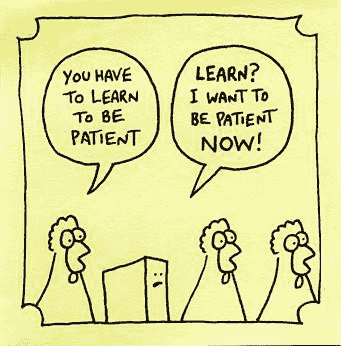 YOU HAVE
TO LEARN
TO BE
PATIENT
LEARN?
I WANT TO
BE PATIENT
NOW!